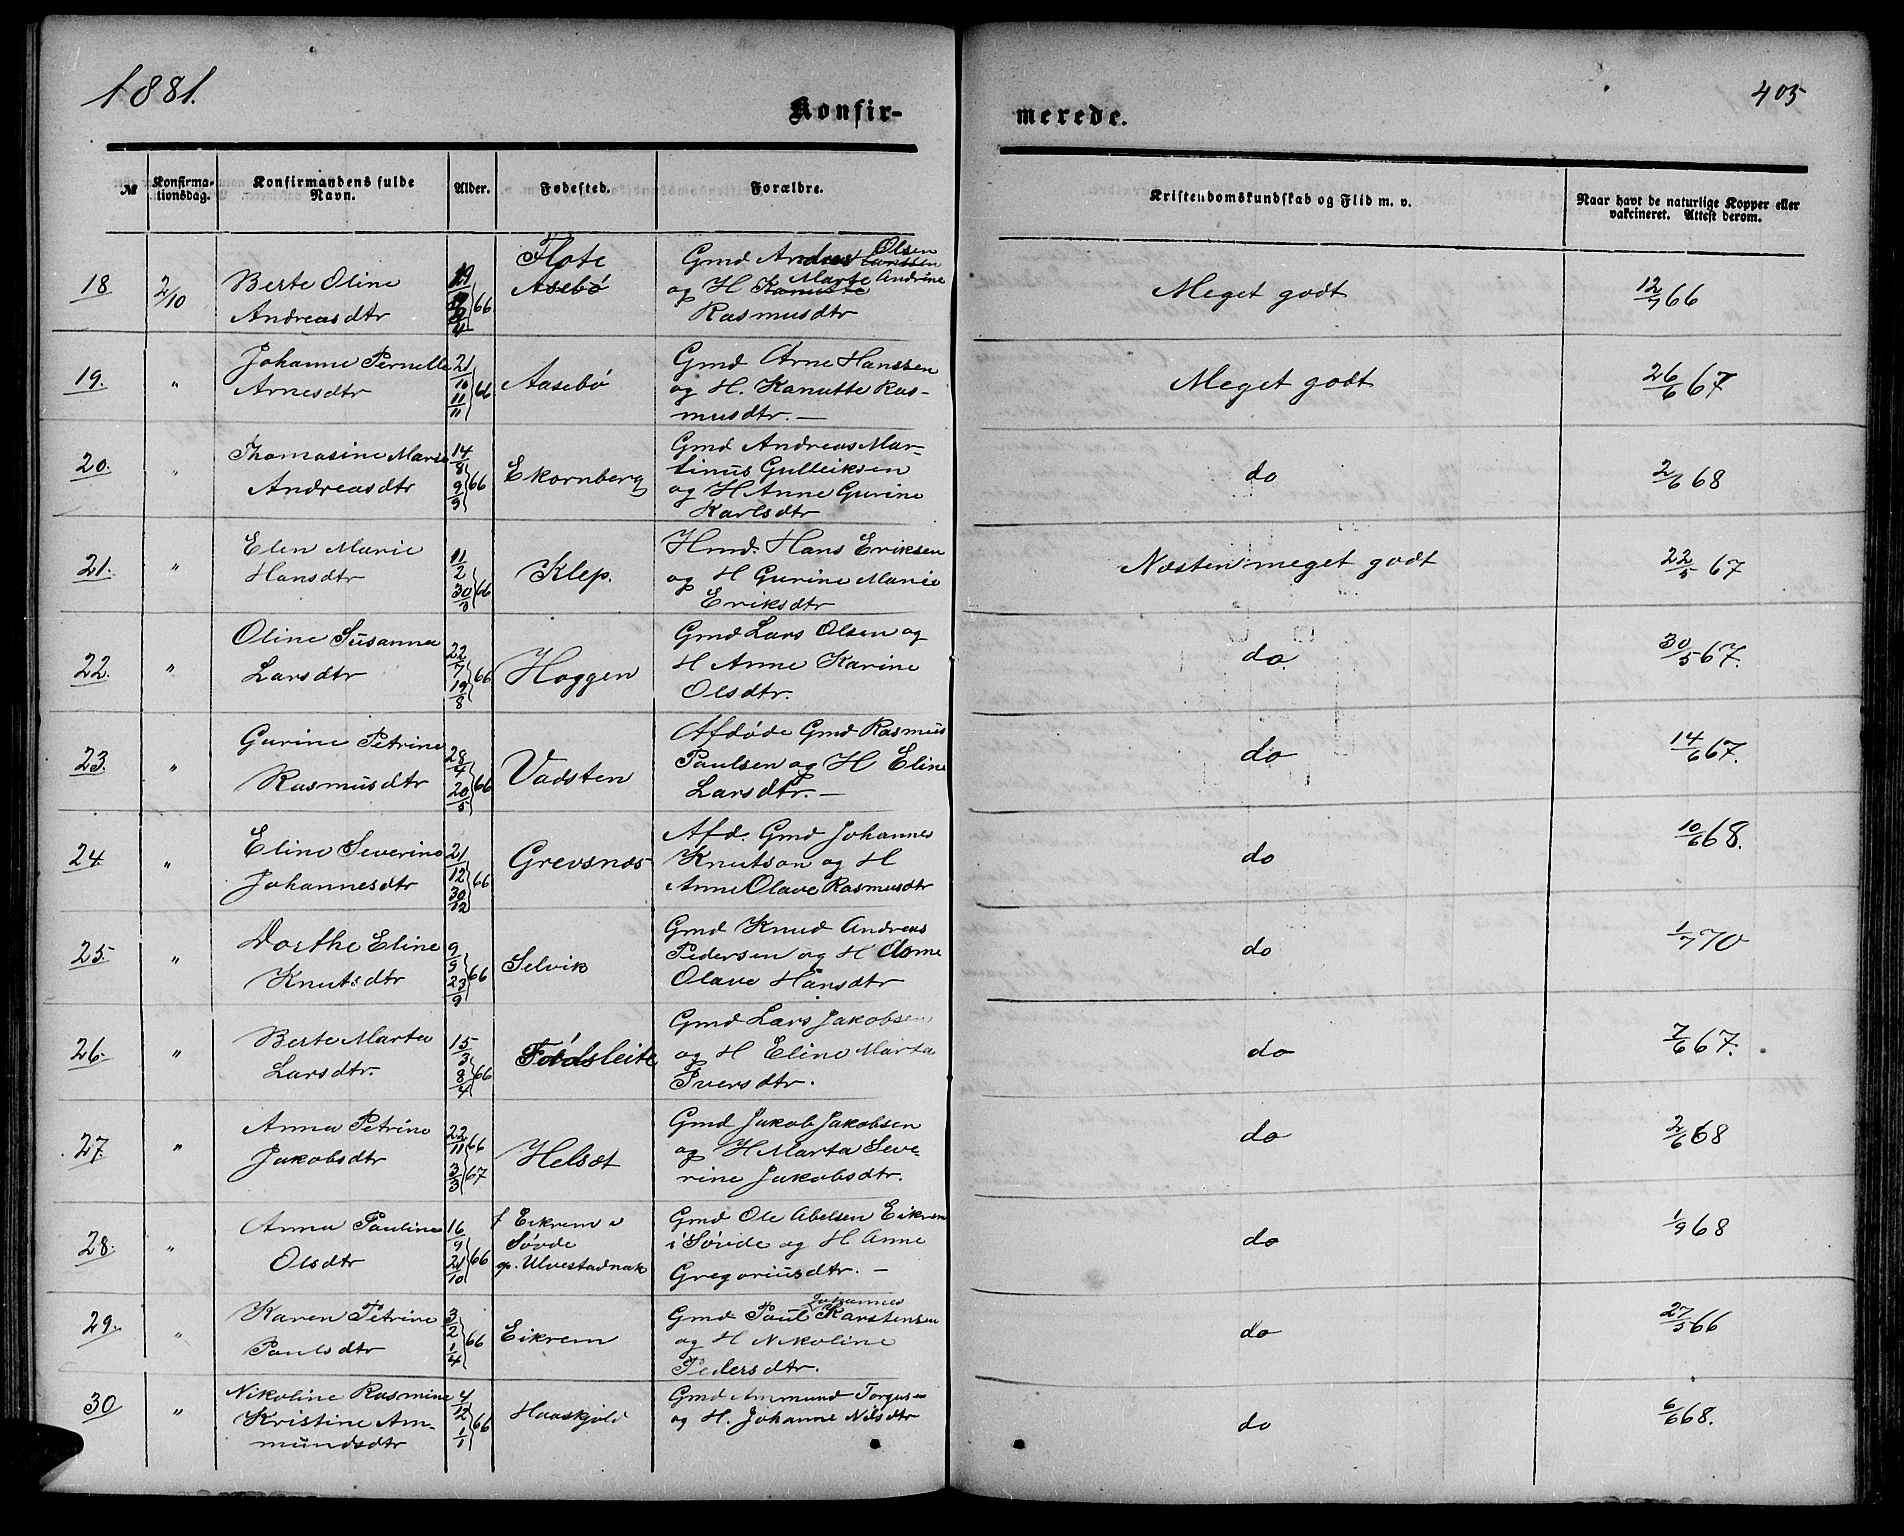 1881.
405
Konfir-
merede.
№
Konfirma-
tionsdag.
Konfirmandens fulde
Navn.
Alder.
Fødested.
Forældre.
Kristendomskundskab og Flid m. v.
Naar havt de naturlige Kopper eller
vakcineret. Attest derom.
18
2/10
Berte Oline
Andreasdtr
66
Flote
Asebø
Gmd Andreas Olsen
og H Marte Andrine
Rasmusdtr
Meget godt
12/7 66
19.
"
Johanne Pernelle
Arnesdtr
21/10
11/11 } 66
Aasebø
Gmd Arne Hanssen
og H. Kanutte Ras-
musdtr. —
Meget godt
26/6 67
20.
"
Thomasine Marie
Andreasdtr
14/8
9/9 } 66
Ekornberg
Gmd Andreas Mar-
tinus Gulleiksen
og H Anne Gurine
Karlsdtr
do
2/6 68
21.
"
Elen Marie
Hansdtr
11/2
30/3 } 66
Klep.
Hmd. Hans Eriksen
og H Gurine Marie
Eriksdtr
Næsten meget godt
22/5 67
22.
"
Oline Susanna
Larsdtr
22/7
19/8 } 66
Haggen
Gmd Lars Olsen og
H Anne Karine
Olsdtr.
do.
30/5 67.
23.
"
Gurine Petrine
Rasmusdtr
28/4
20/5 } 66
Vadsten
Afdøde Gmd Rasmus
Paulsen og H Eline
Larsdtr. —
do
14/6 67.
24.
"
Eline Severine
Johannesdtr
21/12
30/12 } 66
Grevsnæs
Afd. Gmd Johannes
Knutson og H
Anne Olave Rasmusdtr
do
10/6 68.
25.
"
Dorthe Eline
Knutsdtr
9/9
23/9 } 66
Selvik
Gmd Knud Andreas
Pedersen og H Anne
Olave Hansdtr
do
1/7 70
26.
"
Berte Marta
Larsdtr.
15/3
8/4 } 66
Fødsleite
Gmd Lars Jakobsen
og H Eline Marta
Iversdtr.
do
7/6 67.
27.
"
Anna Petrine
Jakobsdtr
22/11 66
3/3 67
Helsæt
Gmd Jakob Jakobsen
og H Marta Seve-
rine Jakobsdtr.
do
2/6 68
28.
"
Anna Pauline
Olsdtr
16/9
21/10 } 66
f Eikrem i
Søvde
op. Ulvestadnak
Gmd Ole Abelsen Eikrem
i Søvde og H Anne
Gregoriusdtr. —
do
1/9 68
29.
"
Karen Petrine
Paulsdtr
3/2
1/4 } 66
Eikrem
Gmd Paul Johannes Karstensen
og H Nikoline
Pedersdtr.
do
27/5 66
30
"
Nikoline Rasmine
Kristine Am-
mundsdtr
4/12
1/1 } 66
Haaskjold
Gmd Ammund Torgus-
og H. Johanne Nilsdtr
do
6/6 68.